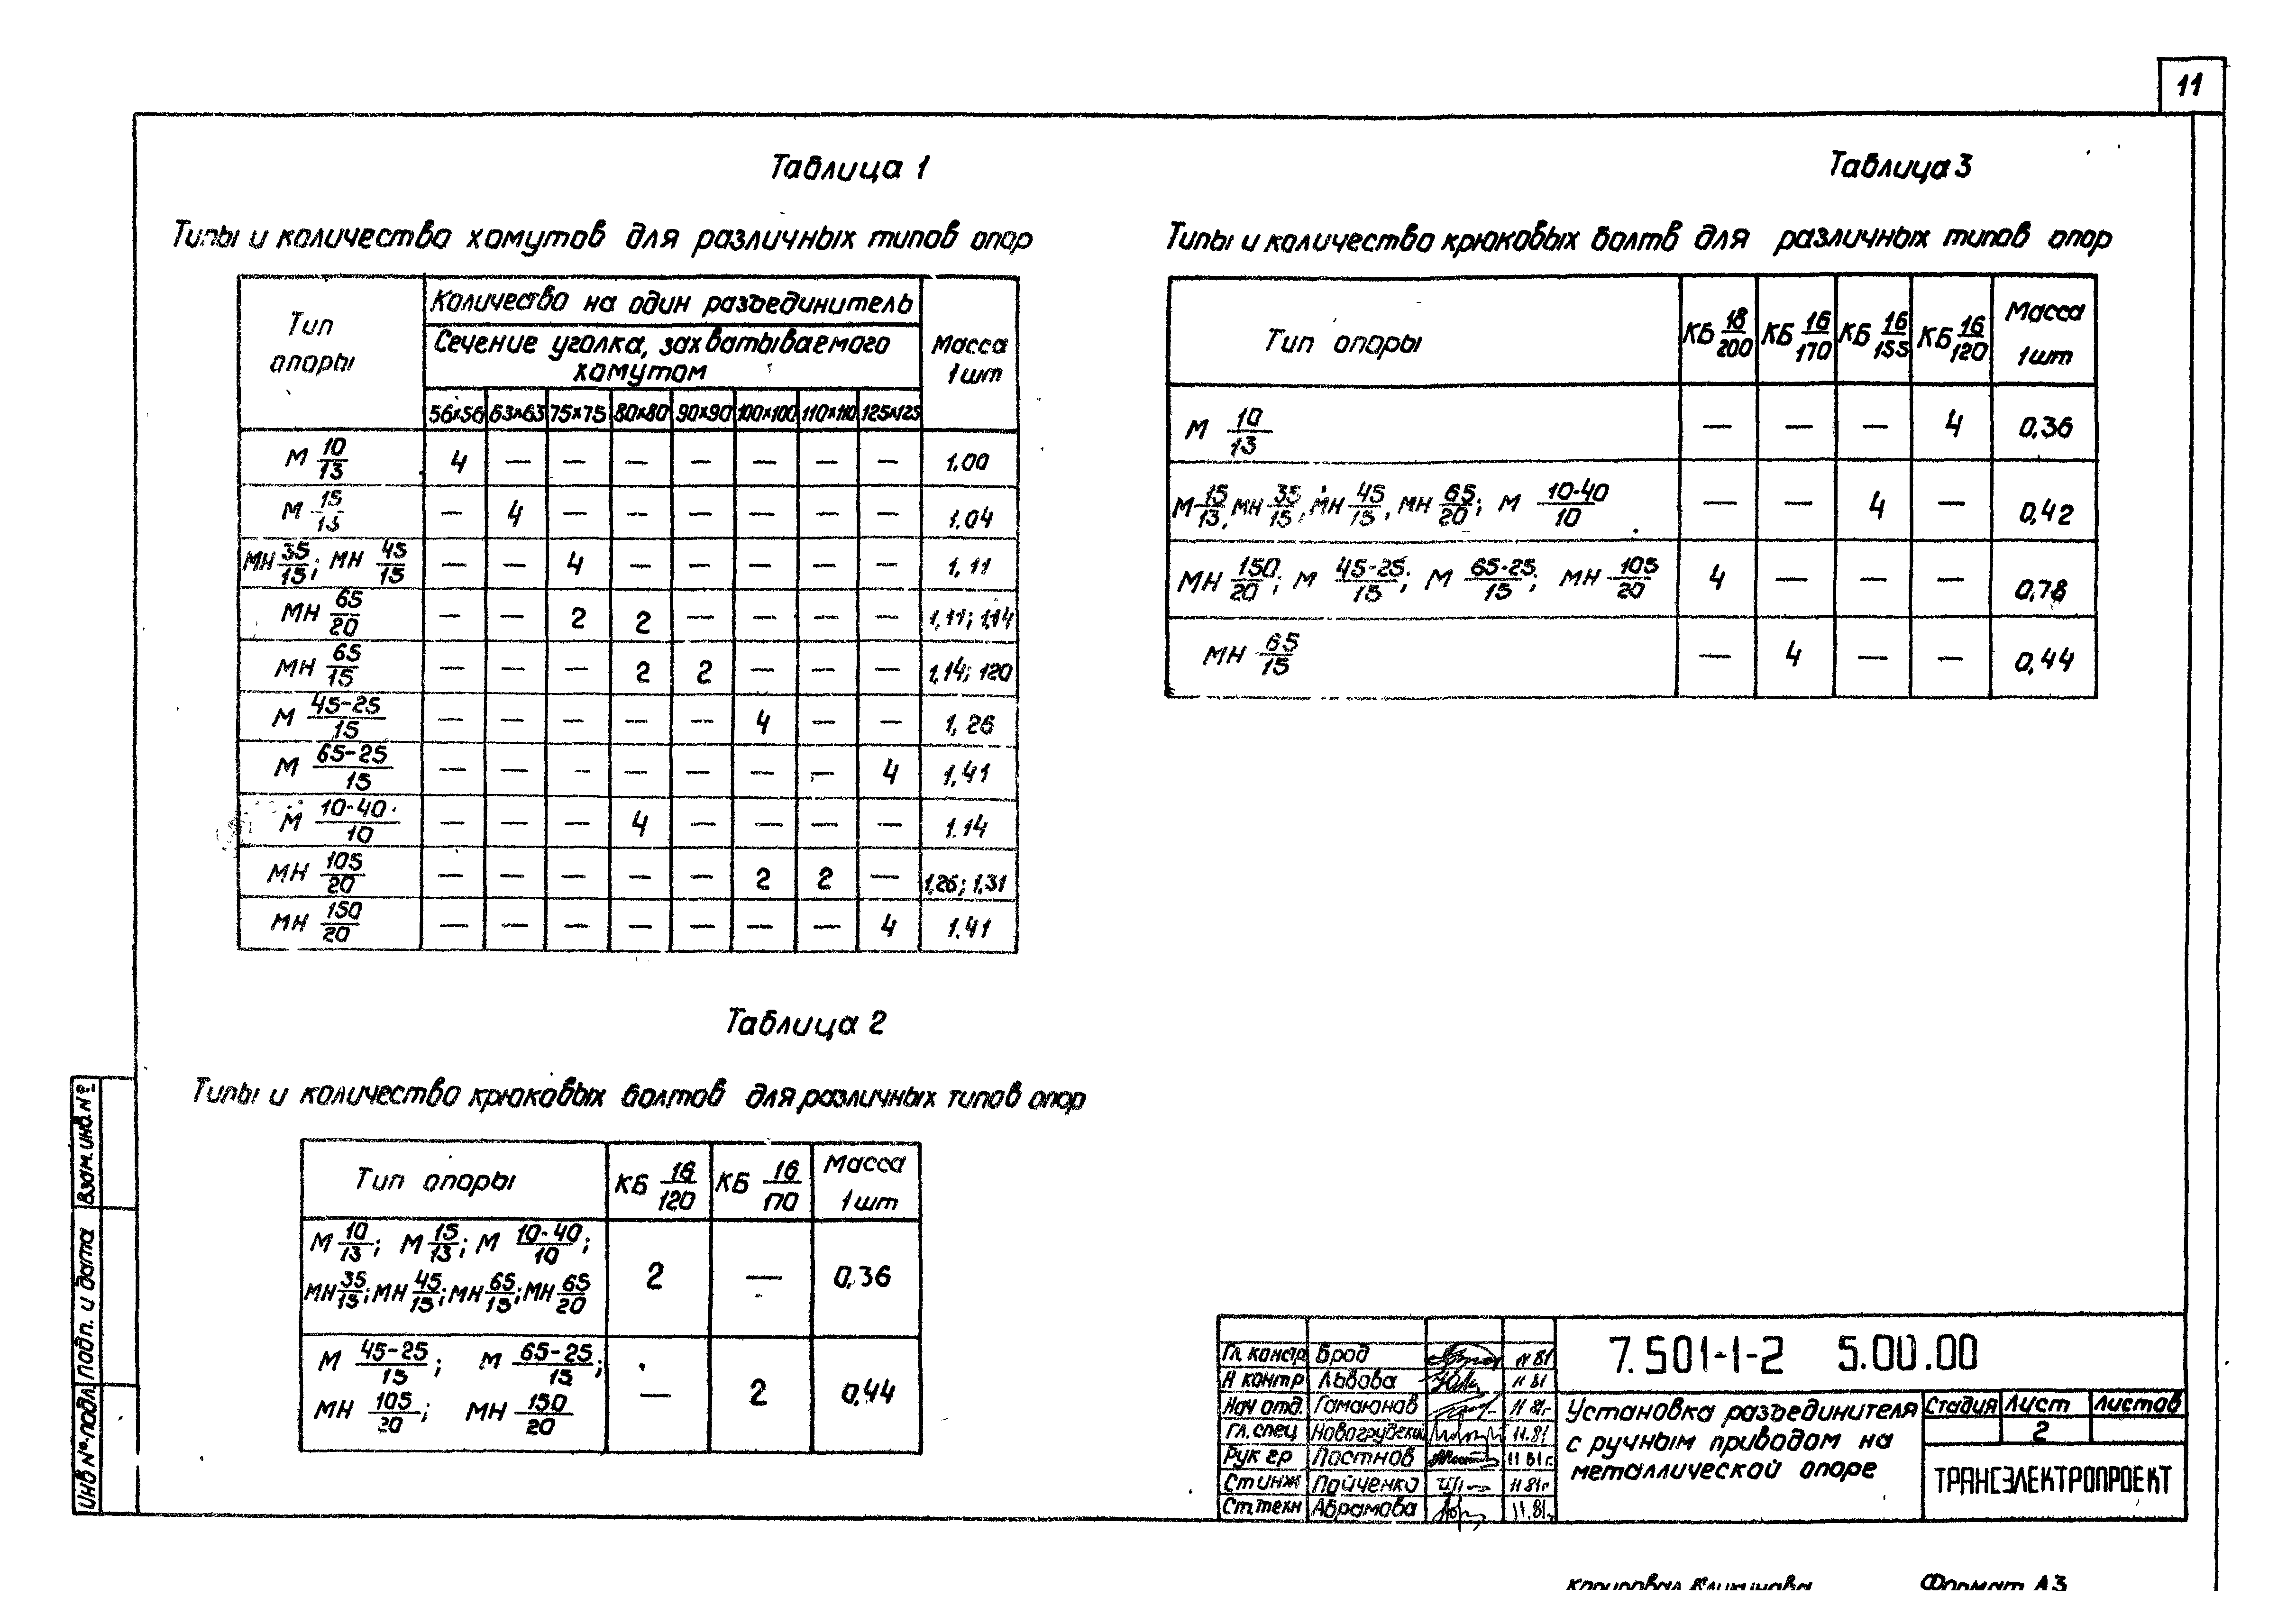 11
Таблица 1
Типы и количество хомутов для различных типов опор
Тип опоры | Количество на один разъединитель | Масса 1шт
Сечение уголка, захватываемого хомутом
56×56 | 63×63 | 75×75 | 80×80 | 90×90 | 100×100 | 110×110 | 125×125
М 10/13 | 4 | — | — | — | — | — | — | — | 1.00
М 15/13 | — | 4 | — | — | — | — | — | — | 1.04
МН 35/15; МН 45/15 | — | — | 4 | — | — | — | — | — | 1,11
МН 65/20 | — | — | 2 | 2 | — | — | — | — | 1,11; 1,14
МН 65/15 | — | — | — | 2 | 2 | — | — | — | 1,14; 120
М 45-25/15 | — | — | — | — | — | 4 | — | — | 1,26
М 65-25/15 | — | — | — | — | — | — | — | 4 | 1,41
М 10-40/10 | — | — | — | 4 | — | — | — | — | 1.14
МН 105/20 | — | — | — | — | — | 2 | 2 | — | 1,26; 1,31
МН 150/20 | — | — | — | — | — | — | — | 4 | 1.41
Таблица 2
Типы и количество крюковых болтов для различных типов опор
Тип опоры | КБ 16/120 | КБ 16/170 | Масса 1шт
М 10/13; М 15/13; М 10-40/10;
МН 35/15; МН 45/15; МН 65/15; МН 65/20 | 2 | — | 0,36
М 45-25/15; М 65-25/15;
МН 105/20; МН 150/20 | — | 2 | 0,44
Таблица 3
Типы и количество крюковых болтв для различных типов опор
Тип опоры | КБ 18/200 | КБ 16/170 | КБ 16/155 | КБ 16/120 | Масса 1шт
М 10/13 | — | — | — | 4 | 0,36
М 15/13, МН 35/15, МН 45/15, МН 65/20; М 10-40/10 | — | — | 4 | — | 0,42
МН 150/20; М 45-25/15; М 65-25/15; МН 105/20 | 4 | — | — | — | 0,78
МН 65/15 | — | 4 | — | — | 0,44
Взам.инв.№
Подп. и дата
Инв №подл
Гл. констр Брод 11 81
Н контр Львова 11 81
Нач отд. Гамаюнов 11 81г
Гл. спец Новогрудский 11.81
Рук гр Постнов 11 81г.
Ст инж Пайченко 11 81г
Ст.техн Абрамова 11.81г.
7.501-1-2 5.00.00
Установка разъединителя
с ручным приводом на
металлической опоре
Стадия Лист Листов
2
ТРАНСЭЛЕКТРОПРОЕКТ
Копировал
Формат А3